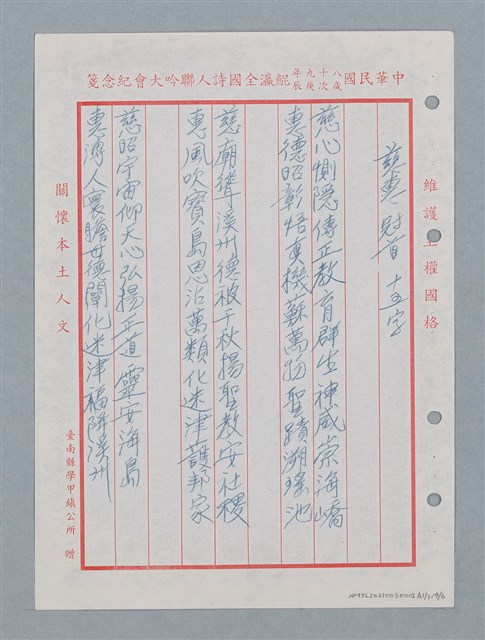 中華民國八十九年歲次庚辰鯤瀛全國詩人聯吟大會紀念箋
維護主權國格
慈惠 冠首 十五字
慈心惻隱傳正教育群生神威崇海嶠
惠德昭彰悟真機蘇萬物聖蹟溯瑤池
慈廟聳溪州德被千秋揚聖教安社稷
惠風吹寶島恩沾萬類化迷津護邦家
慈昭宇宙仰天心弘揚正道靈安海島
惠溥人寰瞻母德闡化迷津福降溪州
關懷本土人文
臺南縣學甲鎮公所 贈
NMTL20210030019